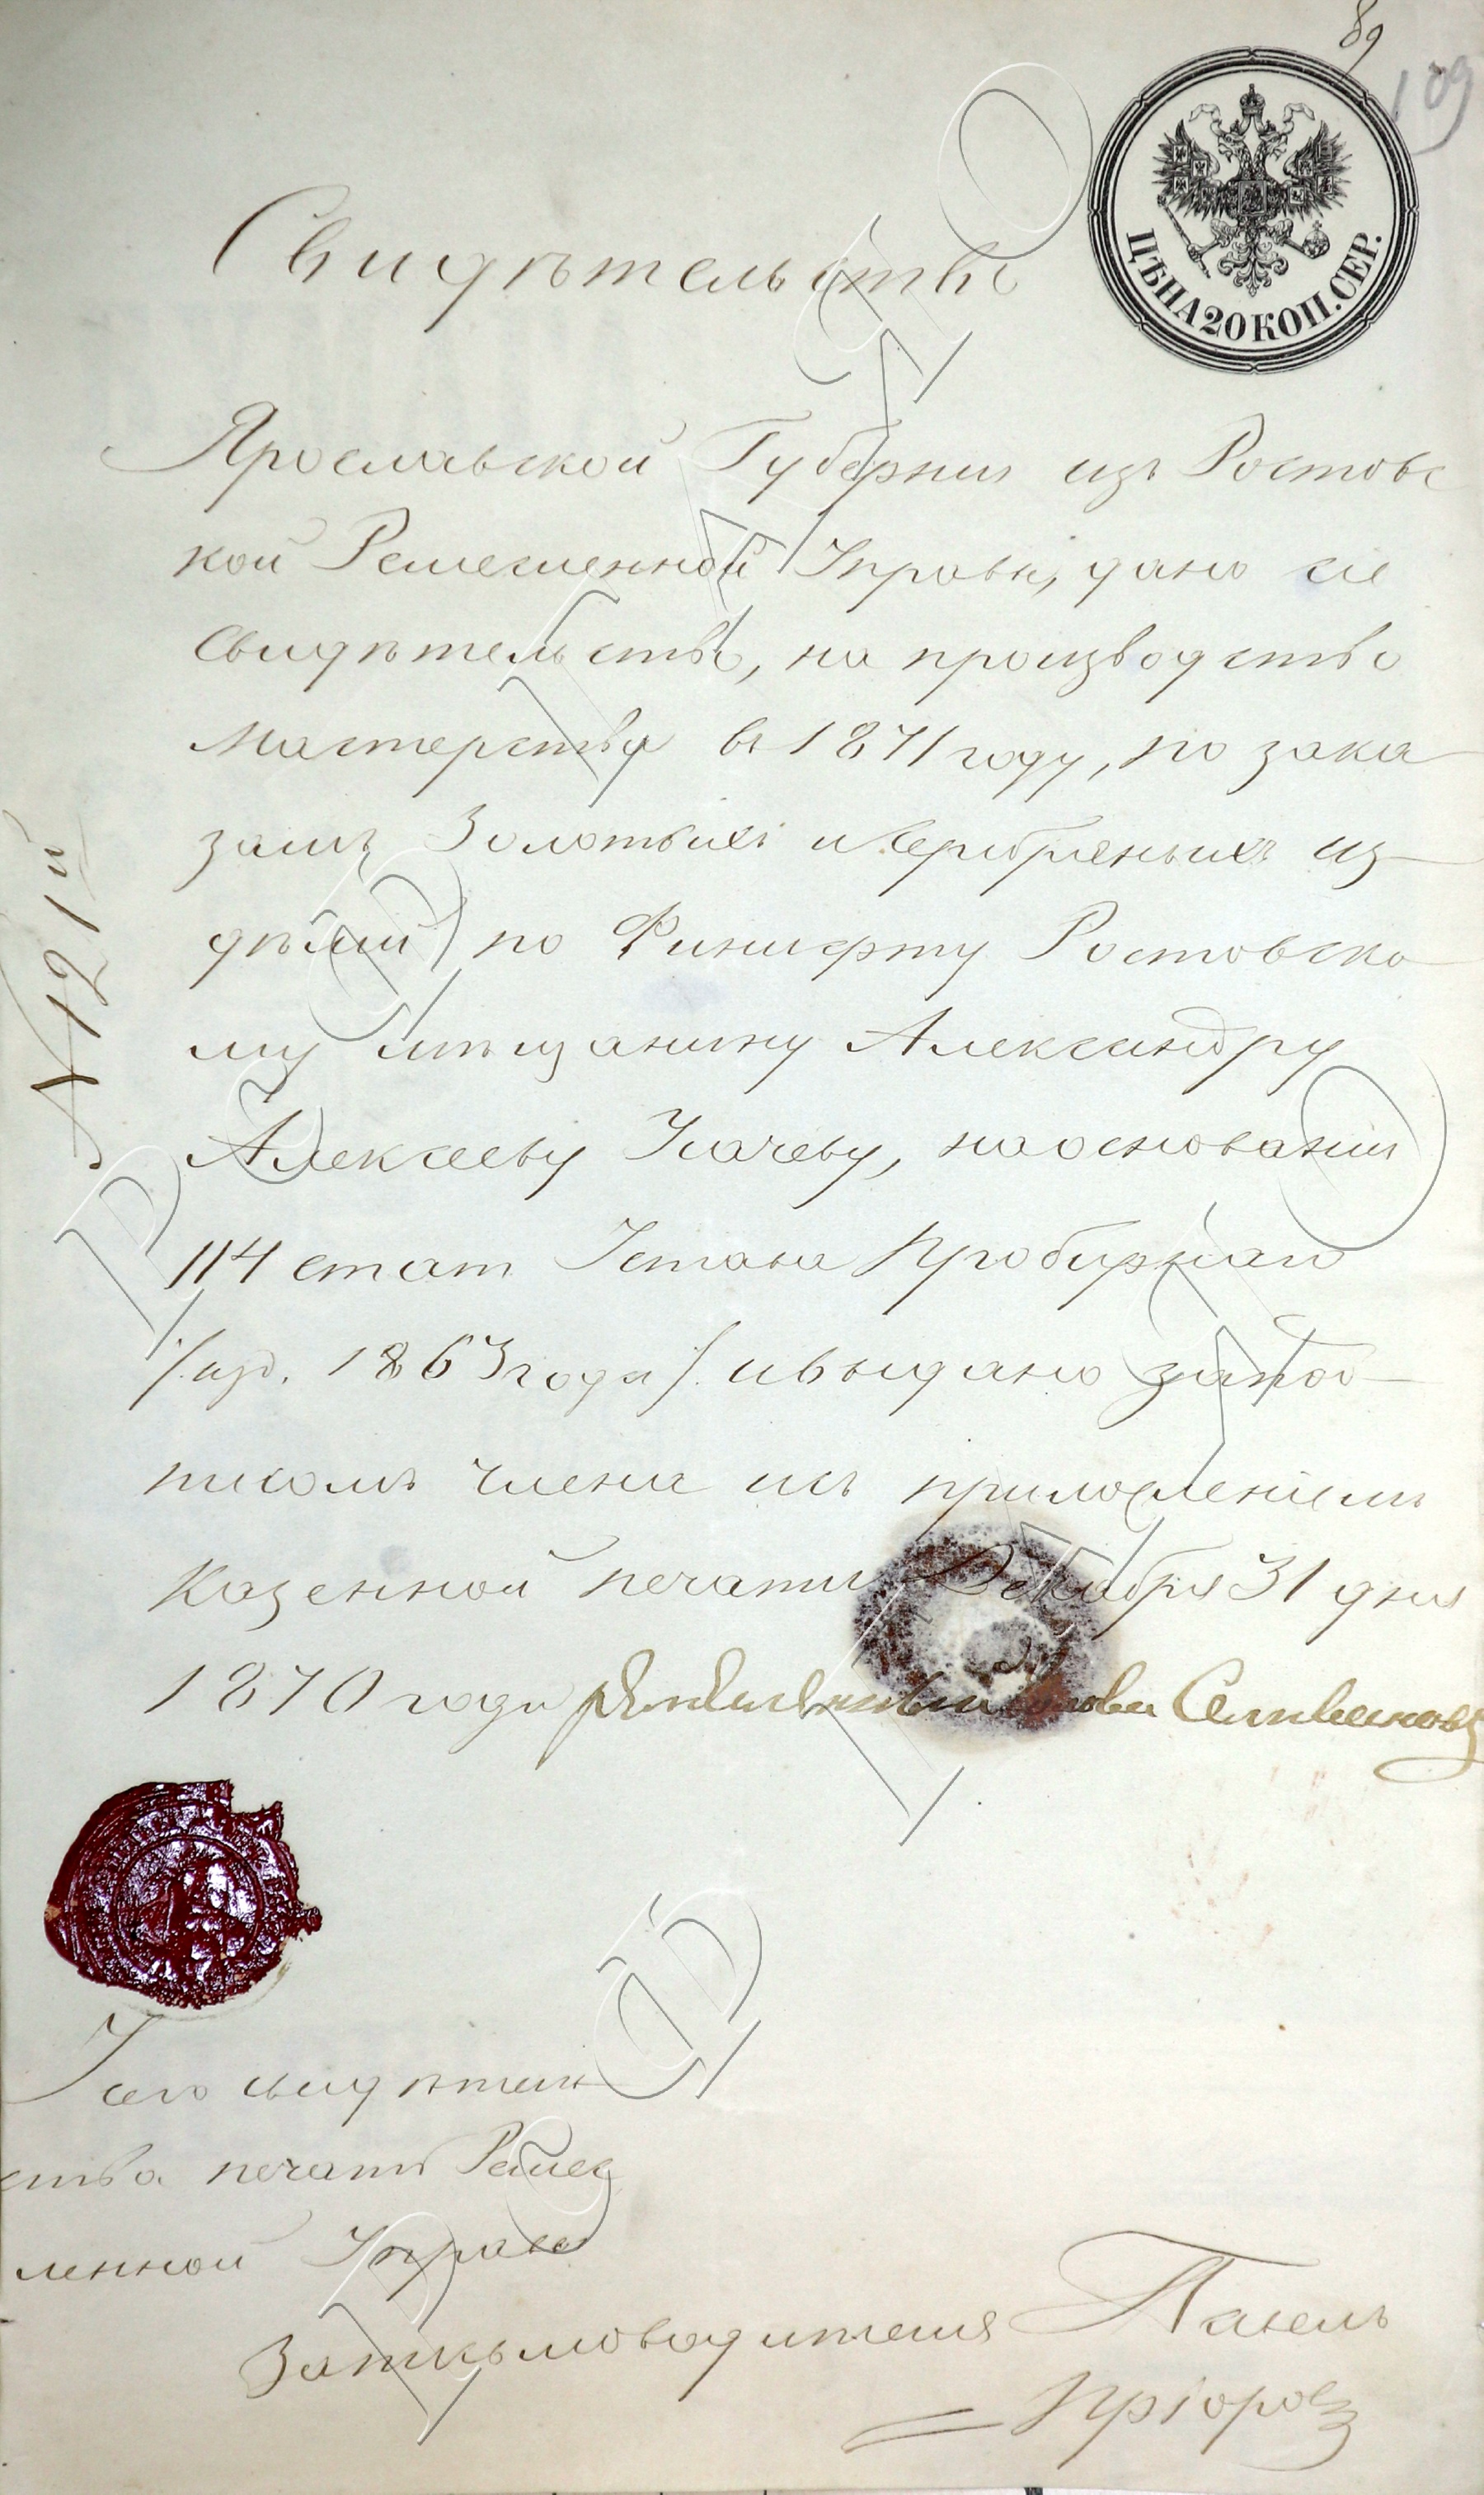 89
109
ЦѢНА 20 КОП. СЕР.
Свидѣтельство
Ярославской Губерніи изъ Ростовс
кой Ремесленной Управы, дано сіе
свидѣтельство, на производство
мастерства въ 1871 году, по зака
замъ Золотыхъ и Серебреныхъ из
дѣлій по Финифту Ростовско
му мѣщанину Александру
Алексееву Усачеву, на основаніи
114 стат Устава Пробирнаго
/изд. 1863 года/. и выдано за под
писомъ члена и съ приложеніемъ
Казенной печати Декабря 31 дня
1870 года Ремесленный Голова Селиванов
№ 21й
У сего свидѣтель
ства печать Ремес
ленной Управы
За письмоводителя Павелъ
Пріоровъ